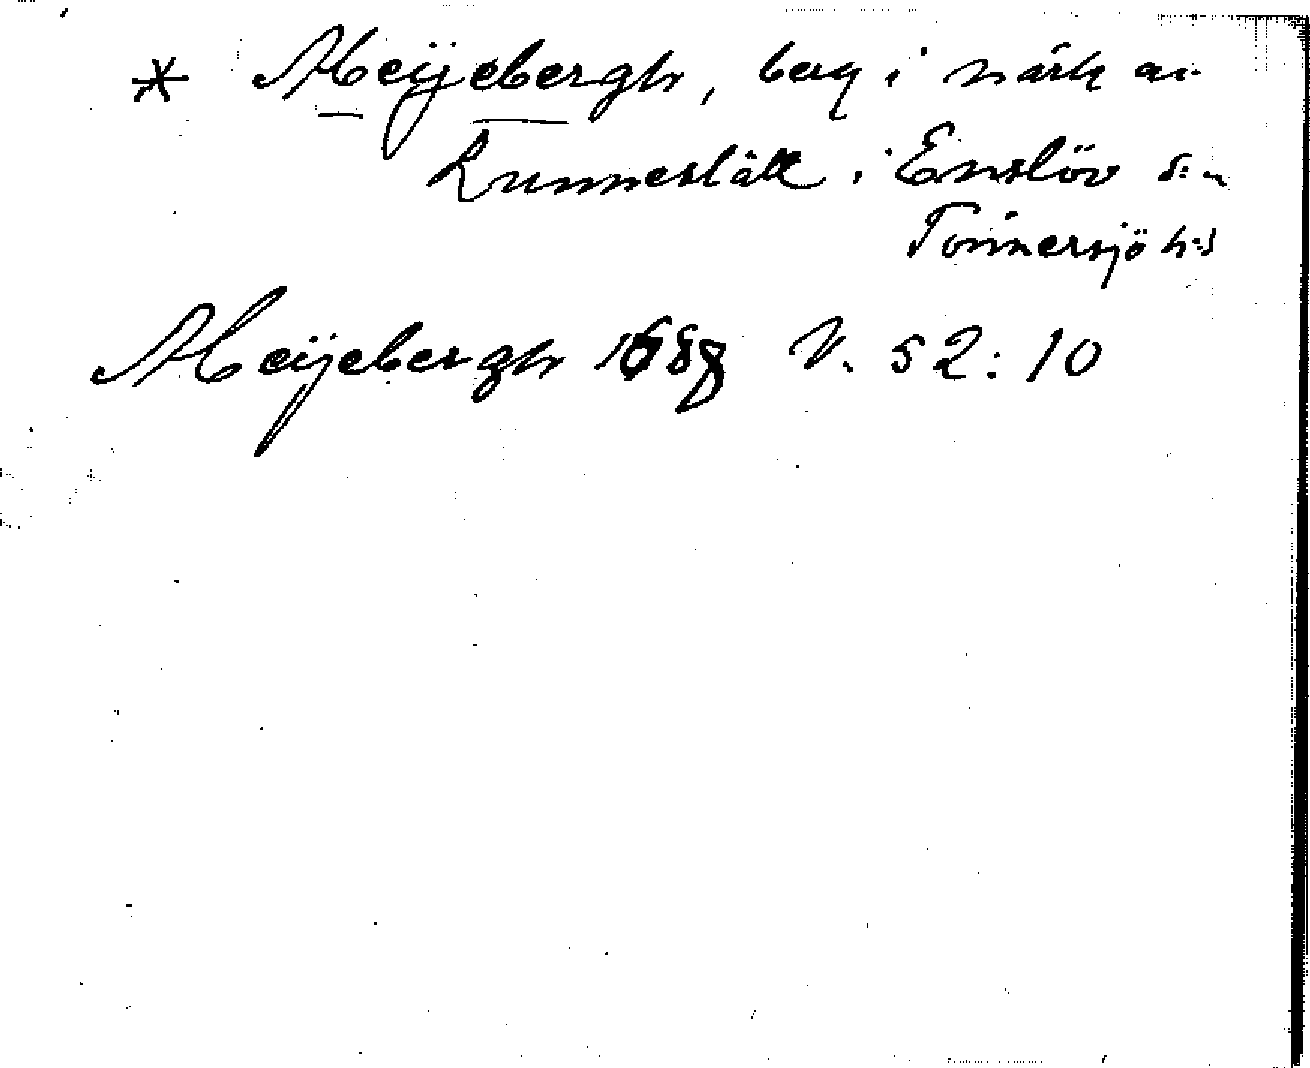 * Meijebergh, berg i närh av
Runneslätt i Enslöv s:n
Tönnersjö h:d
Meijebergh 1688 N. 52:10